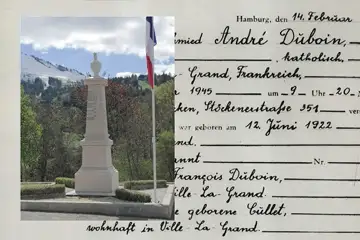 Hamburg, den 14. Februar
hmied André Duboin,
katholisch,
- Grand, Frankreich,
1945 um 9 Uhr 20
ken, Stöckenerstraße 351 ver
war geboren am 12. Juni 1922
and.
annt Nr.
François Duboin,
Ville - La - Grand.
e geborene Cullet,
wohnhaft in Ville - La - Grand.